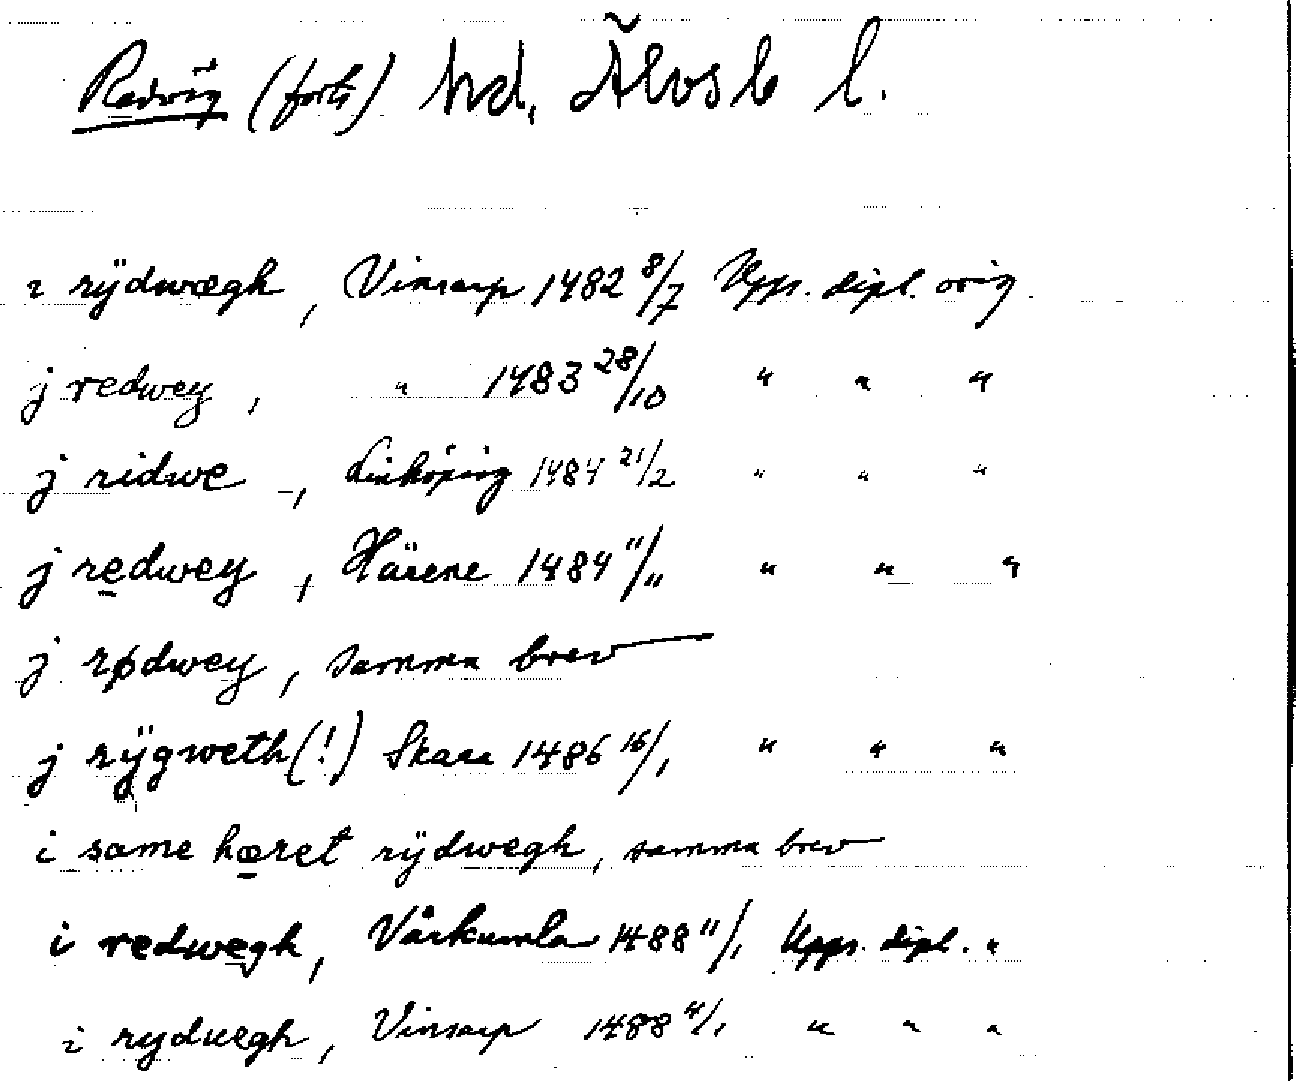 Redväg (forts) hd, Älvsb l.
i rÿdwægh, Vinsarp 1482 8/7 Upps. dipl. orig.
j redwey, " 1483 28/10 " " "
j ridwe, Linköping 1484 21/2 " " "
j redwey, Härene 1484 11/11 " " "
j rødwey, samma brev
j rÿgweth(!) Skara 1486 16/1 " " "
i same hæret rÿdwegh, samma brev
i redwegh, Vårkumla 1488 11/1 Upps. dipl. "
i rydwegh, Vinsarp 1488 4/1 " " "